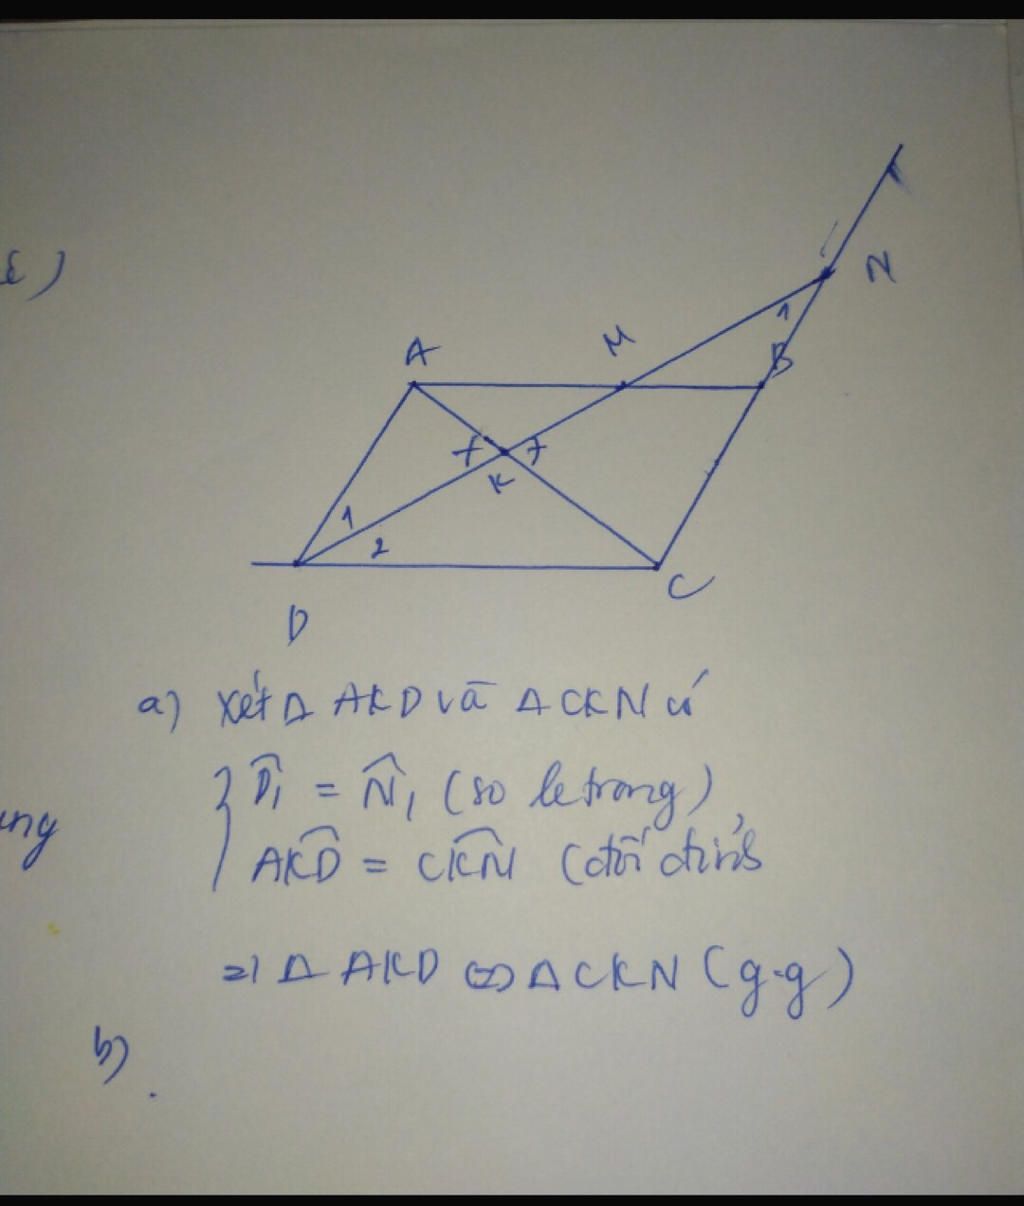 N
1
A
M
B
K
1
2
C
D
a) Xét Δ AKD và Δ CKN có
D̂₁ = N̂₁ (so le trong)
AKD = CKN (đối đỉnh
=> Δ AKD ∽ Δ CKN (g-g)
b)